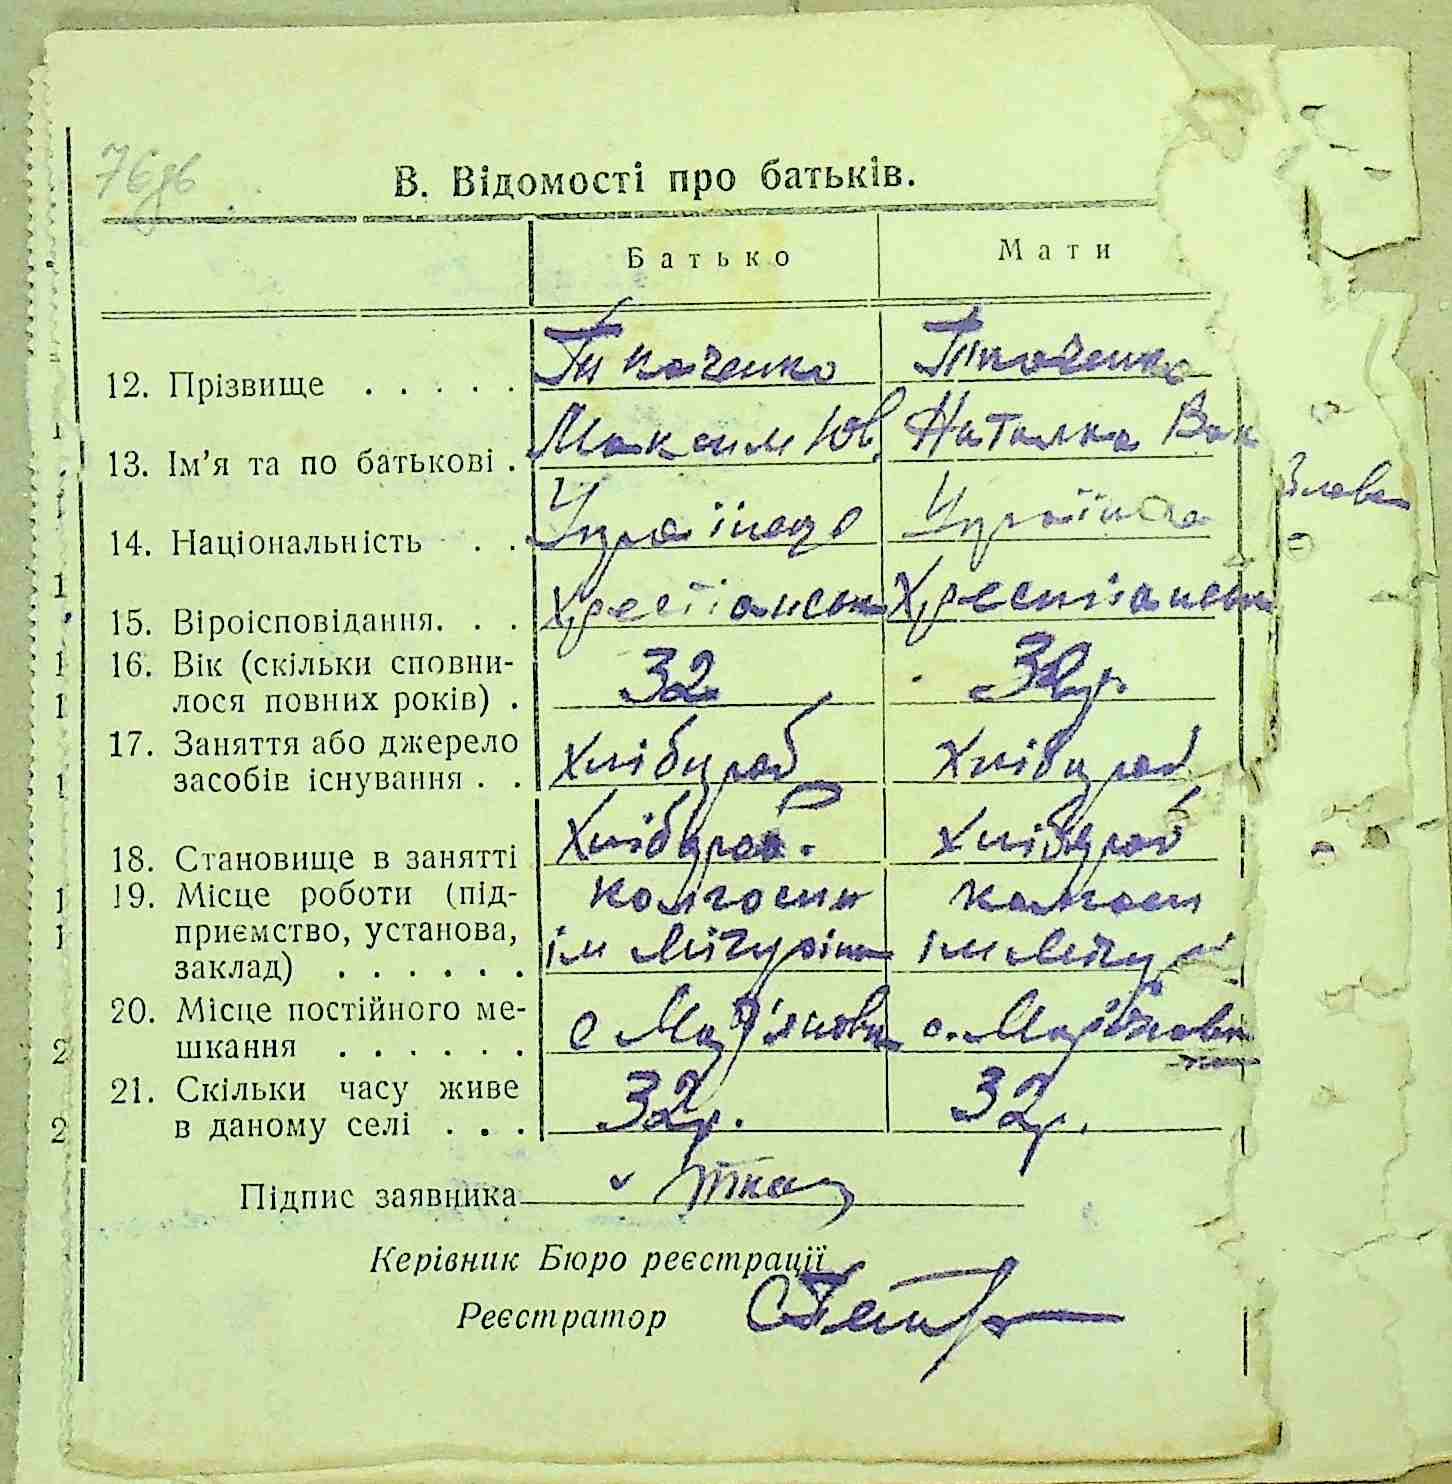 76 зв
В. Відомості про батьків.
Батько Мати
12. Прізвище . . . . . Ткаченко Ткаченко
13. Ім'я та по батькові . Максим Юв. Наталка Вак
14. Національність . . Українець Українка
15. Віроісповідання. . . Хрестіанськ Хрестиіанськ
16. Вік (скільки сповни-
лося повних років) . 32 32 р.
17. Заняття або джерело
засобів існування . . Хлібораб Хлібораб
18. Становище в занятті Хлібораб. Хлібораб
19. Місце роботи (під- колгосп колгосп
приємство, установа, ім Мічуріна ім Мічурі
заклад) . . . . . .
20. Місце постійного ме-
шкання . . . . . . с Мар'яновка с. Мар'яновка
21. Скільки часу живе
в даному селі . . . 32 р. 32 р.
Підпис заявника Ткач
Керівник Бюро реєстрації
Реєстратор